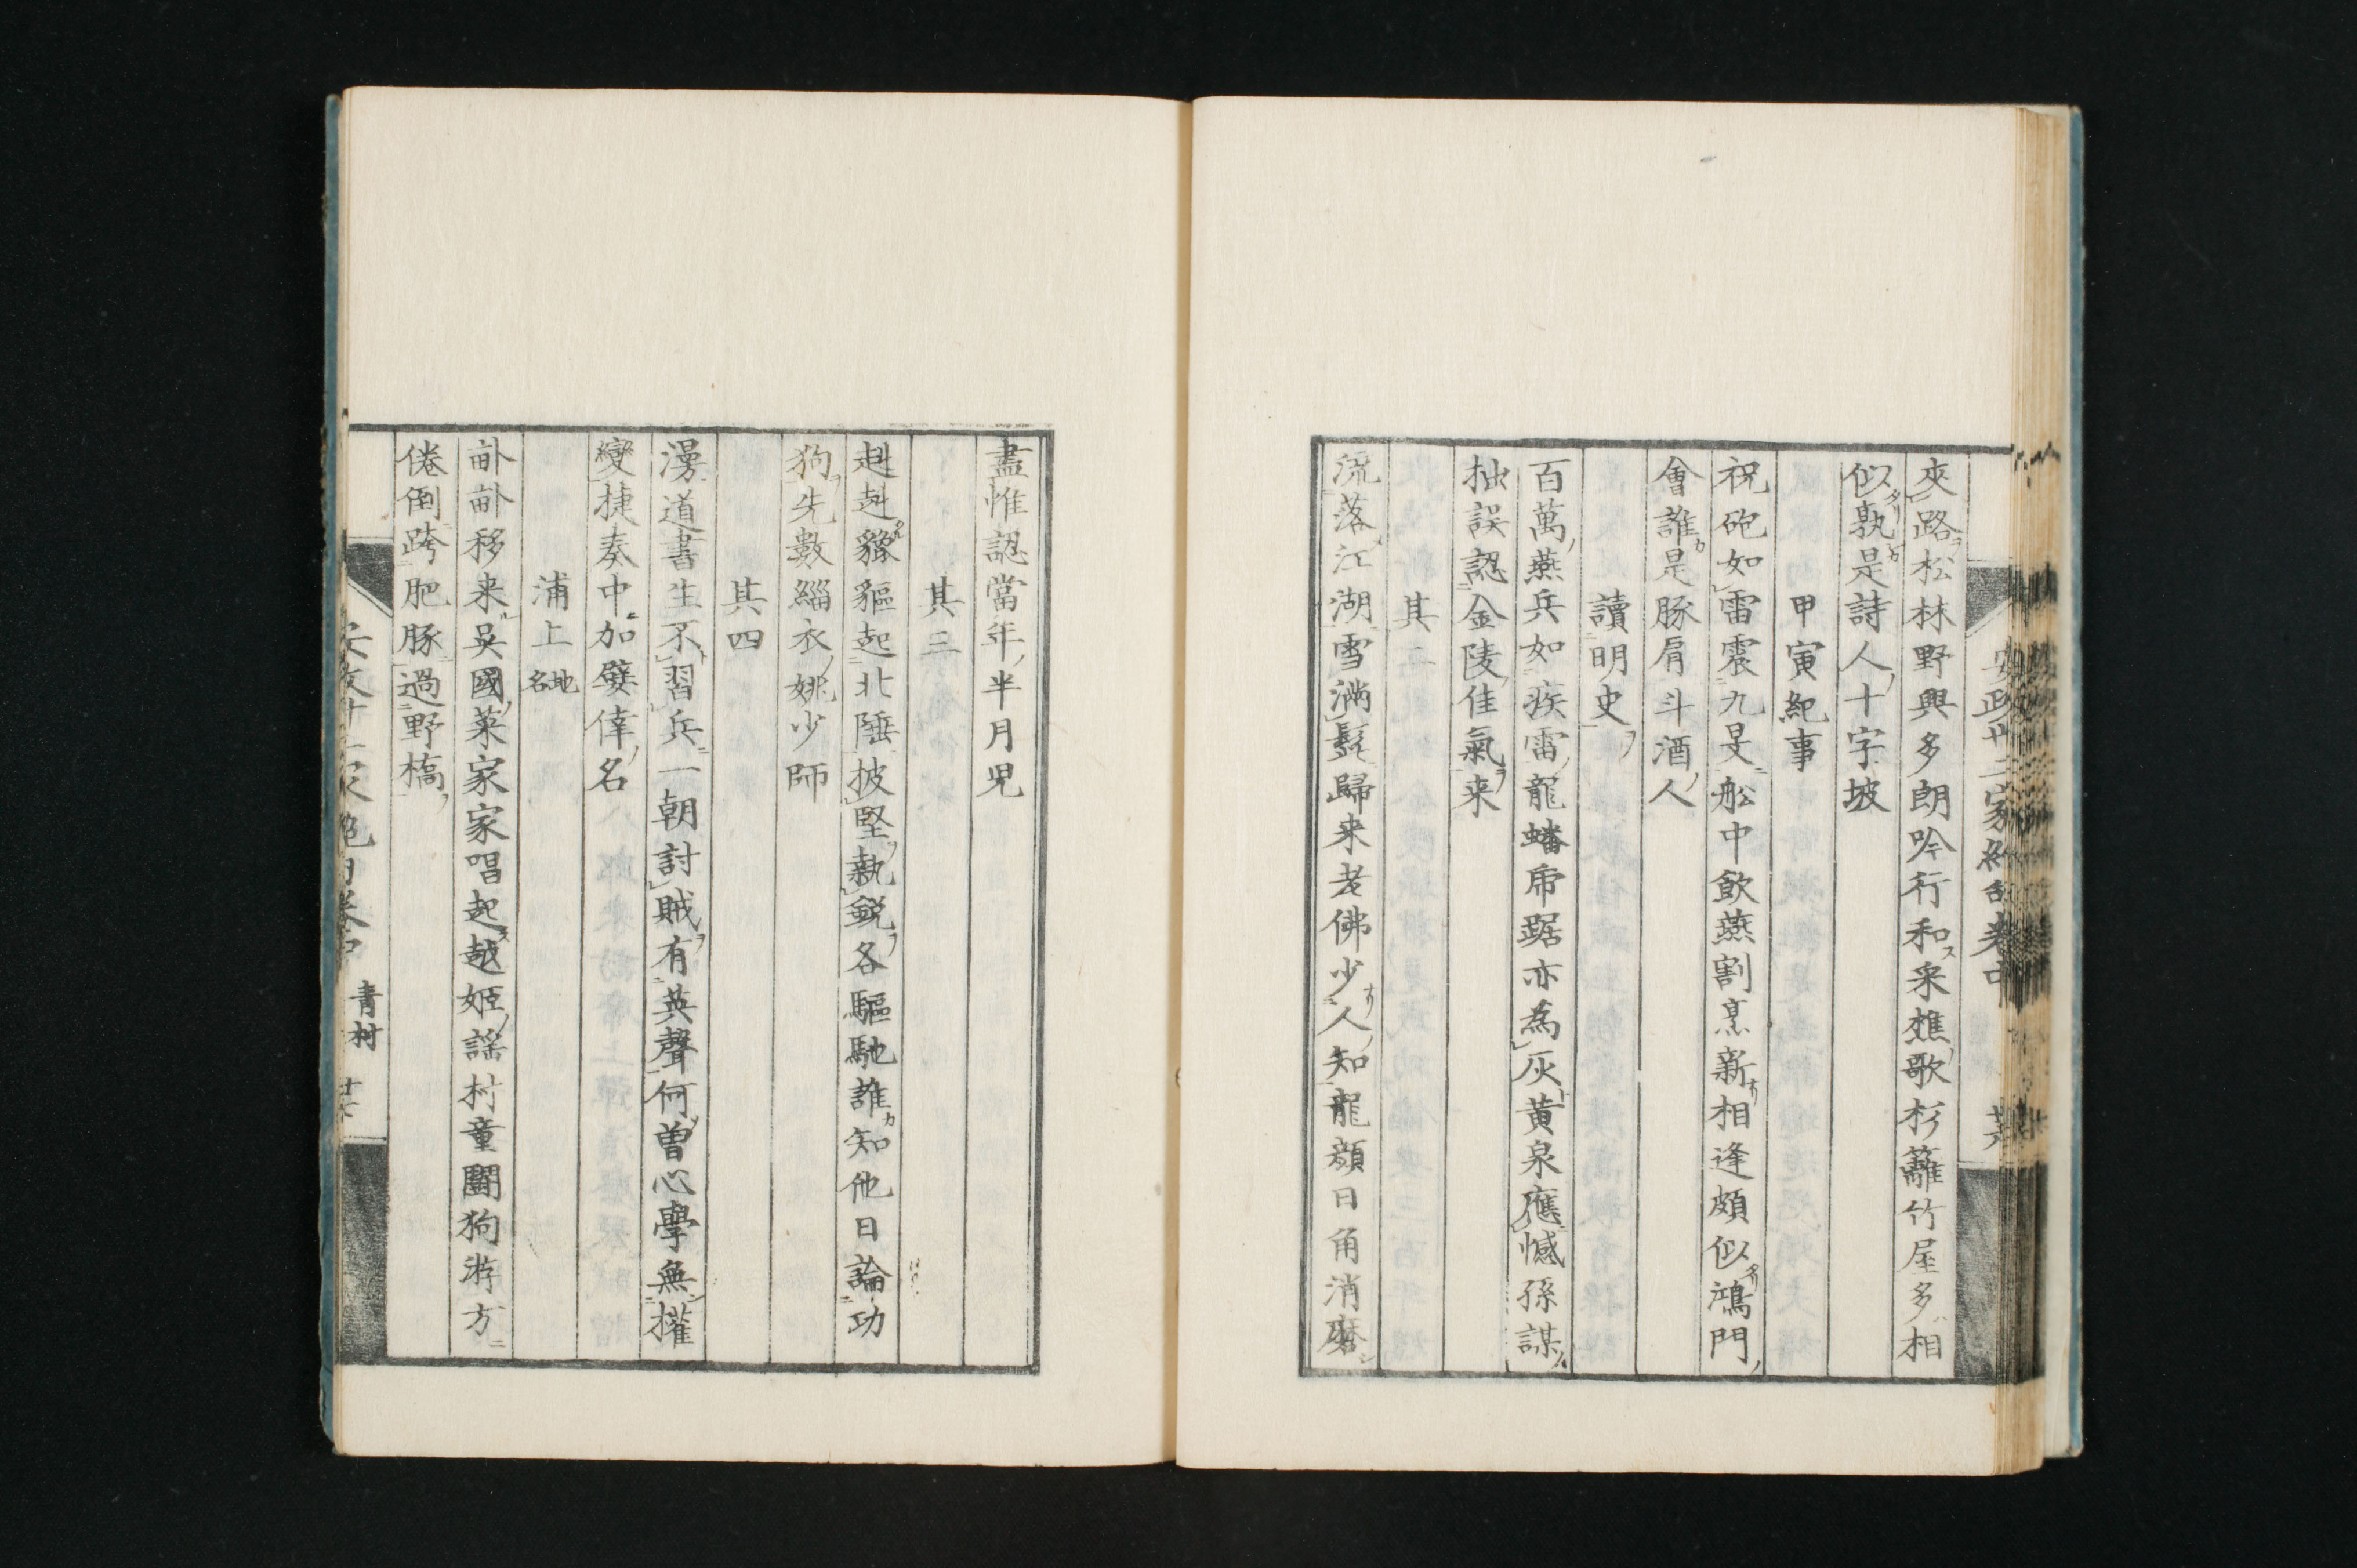 夾路松林野興多朗吟行和采樵歌杉籬竹屋多相
似孰是詩人十字坡
甲寅紀事
祝砲如雷震九旻船中飲燕割烹新相逢頗似鴻門
會誰是豚肩斗酒人
讀明史
百萬燕兵如疾雷龍蟠乕踞亦為灰黄泉應憾孫謀
拙誤認金陵佳氣来
其二
流落江湖雪滿髭歸来老佛少人知龍顔日角消磨
盡惟認當年半月児
其三
赳赳貔貙起北陲披堅執鋭各驅馳誰知他日論功
狗先數緇衣姚少師
其四
漫道書生不習兵一朝討賊有英聲何曽心學無權
變捷奏中加嬖倖名
浦上地名
畝畝移来吳國菜家家唱起越姬謡村童鬪狗游方
倦倒跨肥豚過野橋
青村